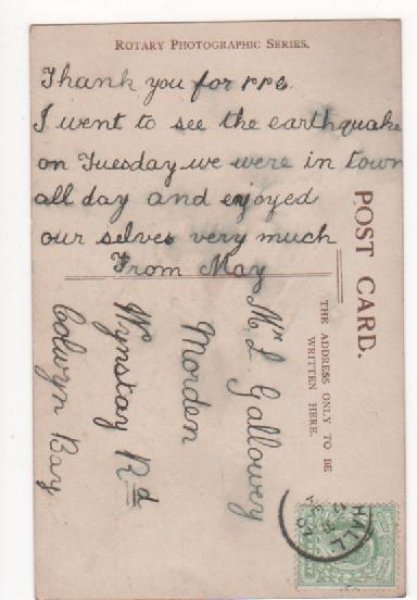 ROTARY PHOTOGRAPHIC SERIES.
Thank you for ppc.
I went to see the earthquake
on Tuesday we were in town
all day and enjoyed
our selves very much
From May
POST CARD.
THE ADDRESS ONLY TO BE
WRITTEN HERE.
Mr L. Gallowey
Morden
Wynstay Rd
Colwyn Bay
HALL